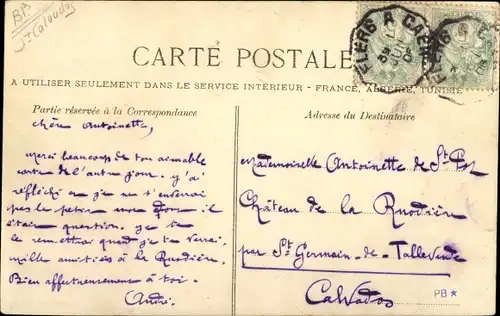 BB
Calvados
CARTE POSTALE
A UTILISER SEULEMENT DANS LE SERVICE INTÉRIEUR - FRANCE, ALGÉRIE, TUNISIE
Partie réservée à la Correspondance
chère Antoinette,
merci beaucoup de ton aimable
carte de l'autre jour. j'ai
réfléchi en je ne t'enverrai
pas le petit dont il
était question. je te
le remettrai quand je te verrai,
mille amitiés à la Ruodière.
Bien affectueusement à toi.
André.
Adresse du Destinataire
Mademoiselle Antoinette de St Pol
Château de la Ruodière
par St Germain-de-Tallevende
Calvados
PB*
FLERS A CAEN
FLERS A C